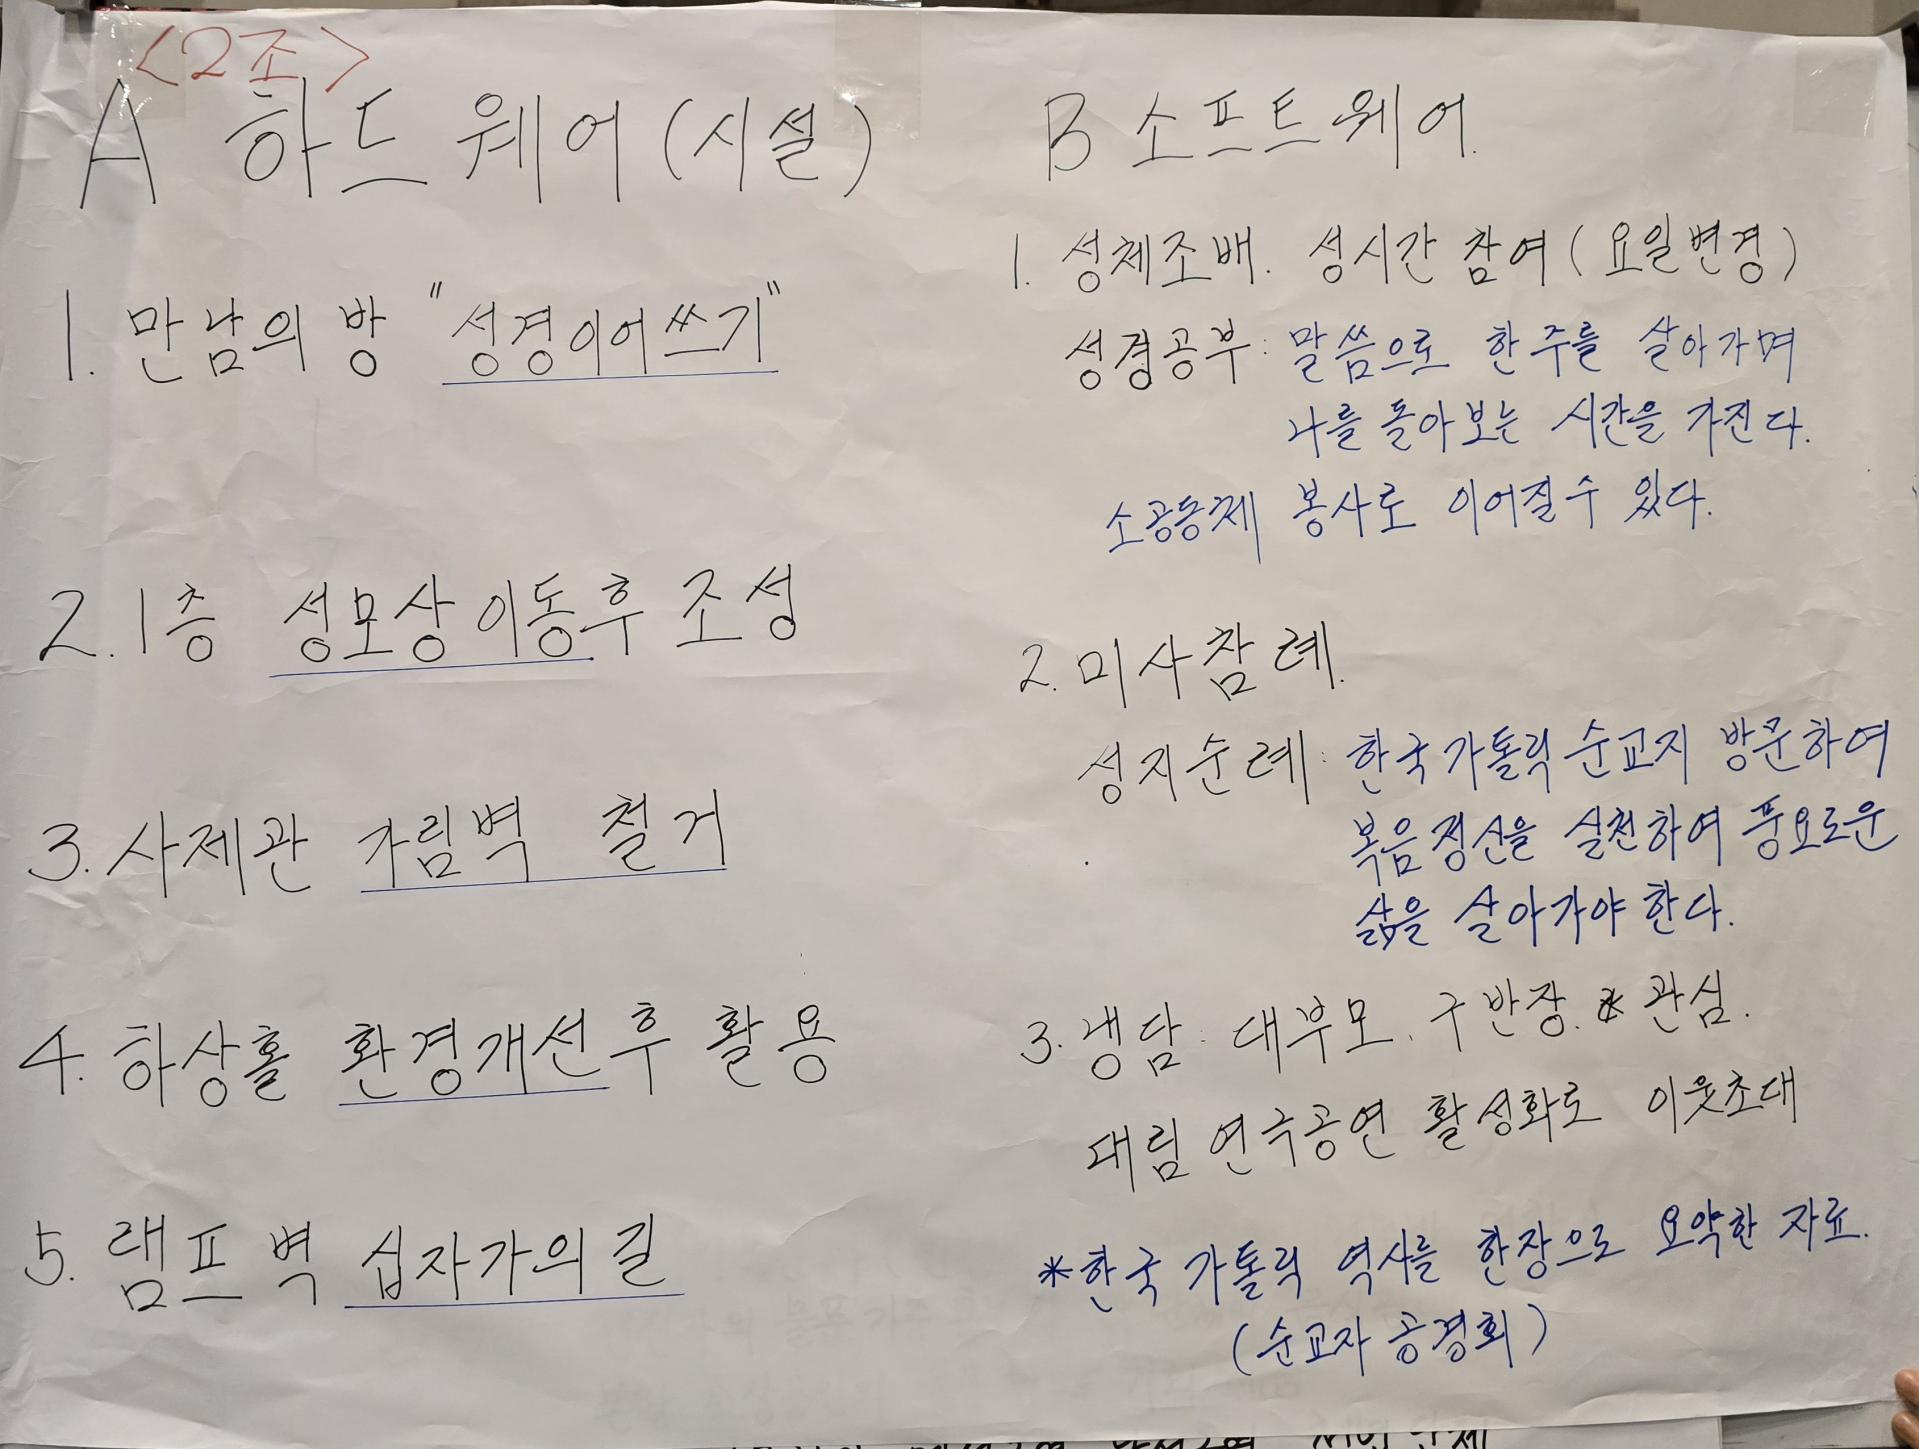 <2조>
A 하드웨어(시설)
1. 만남의 방 "성경이어쓰기"
2. 1층 성모상 이동후 조성
3. 사제관 가림벽 철거
4. 하상홀 환경개선후 활용
5. 램프 벽 십자가의 길
B 소프트웨어.
1. 성체조배. 성시간 참여(요일변경)
성경공부: 말씀으로 한 주를 살아가며
나를 돌아보는 시간을 가진다.
소공동체 봉사로 이어질수 있다.
2. 미사참례.
성지순례: 한국가톨릭 순교지 방문하여
복음정신을 실천하여 풍요로운
삶을 살아가야 한다.
3. 냉담: 대부모. 구반장. * 관심.
대림 연극공연 활성화로 이웃초대
*한국 가톨릭 역사를 한장으로 요약한 자료.
(순교자 공경회)